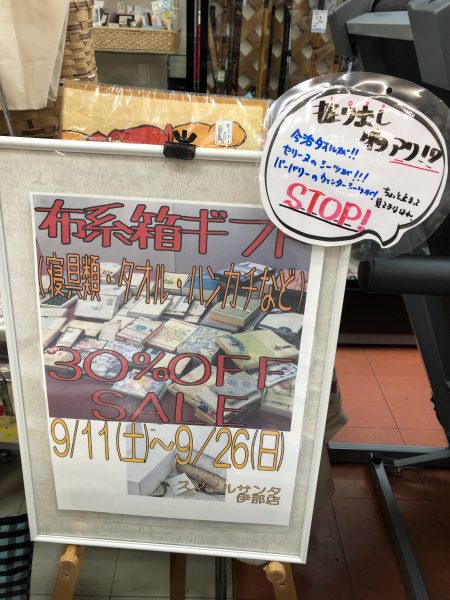 掘りまし
アリ!!タ
今治タオルが!!
セリーヌのシーツが!!!
バーバリーのウィンターシーツが!
ちょっと止まって
見てみなはれ。
STOP!
布系箱ギフト
(寝具類・タオル・ハンカチなど)
30%OFF
SALE
9/11(土)〜9/26(日)
スマイルサンタ
伊那店